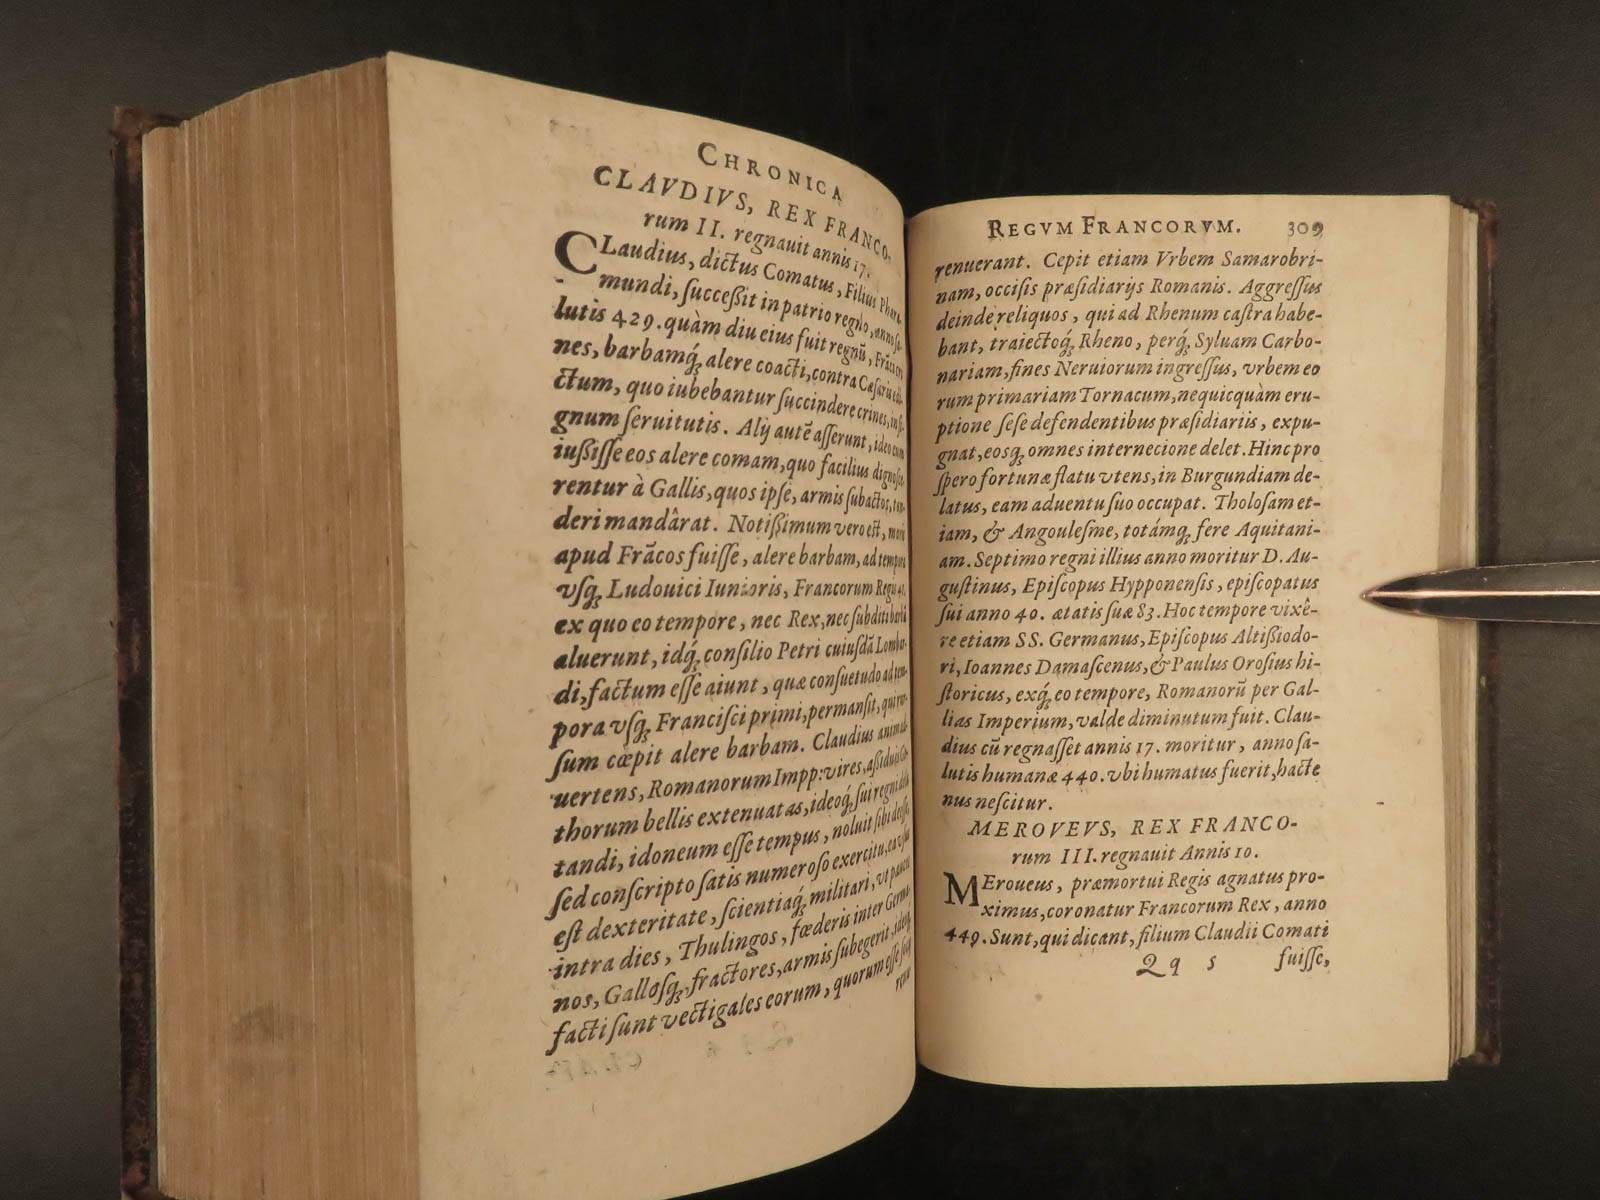 CHRONICA
CLAVDIVS, REX FRANCO-
rum II. regnauit annis 17.
CLaudius, dictus Comatus, Filius Phara-
mundi, succeßit in patrio regno, anno sa-
lutis 429. quàm diu eius fuit regnũ, Frãci cri
nes, barbamq́; alere coacti, contra Cæsaris edi-
ctum, quo iubebantur succindere crines, in si-
gnum seruitutis. Alij autẽ asserunt, ideo eum
iußisse eos alere comam, quo facilius dignosce-
rentur à Gallis, quos ipse, armis subactos, ton-
deri mandârat. Notißimum vero est, moris
apud Frãcos fuisse, alere barbam, ad tempora
vsq́; Ludouici Iunioris, Francorum Regis 41.
ex quo eo tempore, nec Rex, nec subditi barbã
aluerunt, idq́; consilio Petri cuiusdã Lombar-
di, factum esse aiunt, quæ consuetudo ad tem-
pora vsq́; Francisci primi, permansit, qui rur-
sum cœpit alere barbam. Claudius animad-
uertens, Romanorum Impp: vires, aßiduis Go-
thorum bellis extenuatas, ideoq́; sui regni
tandi, idoneum esse tempus, noluit sibi deesse,
sed conscripto satis numeroso exercitu, ea vsus
est dexteritate, scientiaq́; militari, vt paucis
intra dies, Thulingos, fœderis inter Germa-
nos, Gallosq́; fractores, armis subegerit, ideoq́;
facti sunt vectigales eorum, quorum esse socij
renu
REGVM FRANCORVM. 309
renuerant. Cepit etiam Vrbem Samarobri-
nam, occisis præsidiarijs Romanis. Aggressus
deinde reliquos, qui ad Rhenum castra habe-
bant, traiectoq́; Rheno, perq́; Syluam Carbo-
nariam, fines Neruiorum ingressus, vrbem eo
rum primariam Tornacum, nequicquàm eru-
ptione sese defendentibus præsidiariis, expu-
gnat, eosq́; omnes internecione delet. Hinc pro
spero fortunæ flatu vtens, in Burgundiam de-
latus, eam aduentu suo occupat. Tholosam et-
iam, & Angoulesme, totámq́; fere Aquitani-
am. Septimo regni illius anno moritur D. Au-
gustinus, Episcopus Hypponensis, episcopatus
sui anno 40. ætatis suæ 83. Hoc tempore vixê-
re etiam SS. Germanus, Episcopus Altißiodo-
ri, Ioannes Damascenus, & Paulus Orosius hi-
storicus, exq́; eo tempore, Romanorũ per Gal-
lias Imperium, valde diminutum fuit. Clau-
dius cũ regnasset annis 17. moritur, anno sa-
lutis humanæ 440. vbi humatus fuerit, hacte
nus nescitur.
MEROVEVS, REX FRANCO-
rum III. regnauit Annis 10.
MEroueus, præmortui Regis agnatus pro-
ximus, coronatur Francorum Rex, anno
449. Sunt, qui dicant, filium Claudii Comati
Qq 5 fuisse,